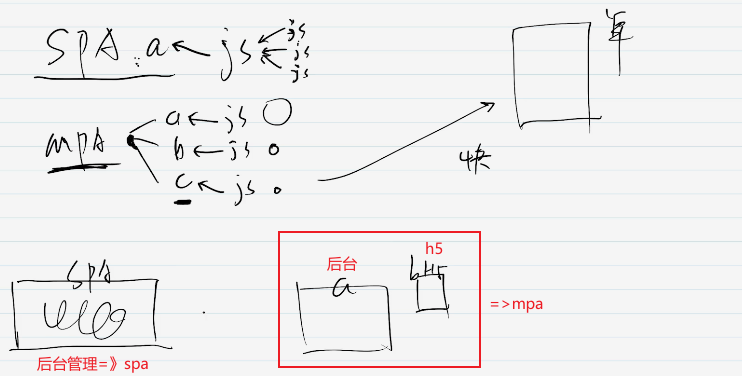 SPA : a ← js ← js
js
js
单
mpA
a ← js
b ← js
c ← js
快
SPA
后台管理=》spa
后台
a
h5
b H5
=>mpa